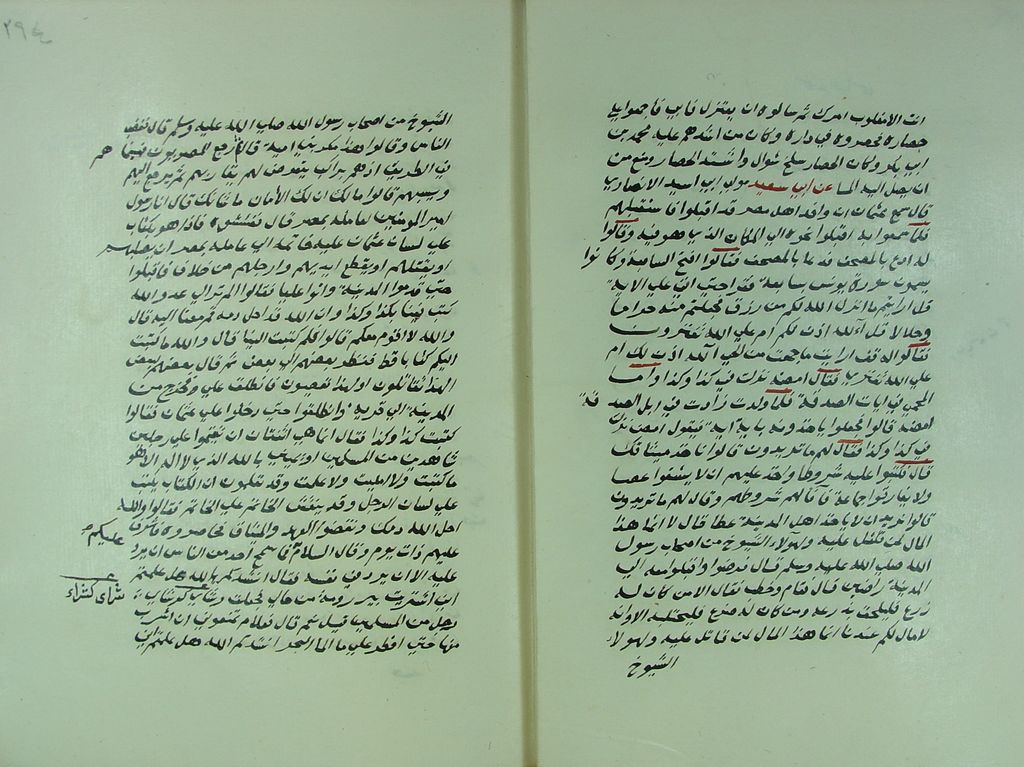 انت الا مغلوب امرك ثم سالوه ان يعتزل فابى فاجمعوا على
حصاره فحصروه في داره وكان من اشدهم عليه محمد بن
ابي بكر وكان الحصار سلخ شوال واشتد الحصار ومنع من
ان يصل اليه الماء عن ابي سعيد مولى ابي اسيد الانصاري
قال سمع عثمان ان وفد اهل مصر قد اقبلوا فاستقبلهم
فلما سمعوا به اقبلوا نحوه الى المكان الذي هو فيه وقالوا
له ادع بالمصحف فدعا بالمصحف فقالوا افتح السابعة وكانوا
يسمون سورة يونس سابعة فقرا حتى اتى على الاية
قل ارايتم ما انزل الله لكم من رزق فجعلتم منه حراما
وحلالا قل آلله اذن لكم ام على الله تفترون
فقالوا له قف ارايت ما حميت من الحمى آلله اذن لك ام
على الله تفتري فقال امضه نزلت في كذا وكذا واما
الحمى في ابل الصدقة فلما ولدت زادت في ابل الصدقة
امضه قالوا فجعلوا ياخذونه باية اية فيقول امضه نزلت
في كذا وكذا فقال لهم ما تريدون قالوا ناخذ ميثاقك
قال فكتبوا عليه شروطا واخذ عليهم ان لا يشقوا عصا
ولا يفارقوا جماعة فاقام لهم شروطهم وقال لهم ما تريدون
قالوا نريد ان لا ياخذ اهل المدينة عطا قال لا انما هذا
المال لمن قاتل عليه ولهولاء الشيوخ من اصحاب رسول
الله صلى الله عليه وسلم قال فرضوا واقبلوا معه الى
المدينة راضين قال فقام وخطب فقال الا من كان له
زرع فليلحق بزرعه ومن كان له ضرع فليحتلبه الا وانه
لا مال لكم عندنا انما هذا المال لمن قاتل عليه ولهولاء
الشيوخ
٢٩٤
الشيوخ من اصحاب رسول الله صلى الله عليه وسلم قال فغضب
الناس وقالوا هذا مكر بني امية قال ثم رجع المصريون فبينما هم
في الطريق اذ هم براكب يتعرض لهم يفارقهم ثم يرجع اليهم
ويسبهم قالوا مالك ان لك الامان ما شانك قال انا رسول
امير المومنين الى عامله بمصر قال ففتشوه فاذا هو بكتاب
على لسان عثمان عليه خاتمه الى عامله بمصر ان يصلبهم
او يقتلهم او يقطع ايديهم وارجلهم من خلاف فاقبلوا
حتى قدموا المدينة واتوا عليا فقالوا الم تر الى عدو الله
كتب فينا بكذا وكذا وان الله قد احل دمه قم معنا اليه قال
والله لا اقوم معكم قالوا فلم كتبت الينا قال والله ما كتبت
اليكم كتابا قط فنظر بعضهم الى بعض ثم قال بعضهم لبعض
الهذا تقاتلون او لهذا تغضبون فانطلق علي وخرج من
المدينة الى قرية وانطلقوا حتى دخلوا على عثمان فقالوا
كتبت كذا وكذا فقال انما هي اثنتان ان تقيموا علي رجلين
شاهدين من المسلمين او يميني بالله الذي لا اله الا هو
ما كتبت ولا امليت ولا علمت وقد تعلمون ان الكتاب يكتب
على لسان الرجل وقد ينقش الخاتم على الخاتم فقالوا والله
احل الله دمك ونقضوا العهد والميثاق فحاصروه فاشرف
عليهم ذات يوم وقال السلام عليكم فما سمع احد من الناس ان يرد
عليه الا ان يرد في نفسه فقال انشدكم بالله هل علمتم
اني اشتريت بير رومة من مالي فجعلت رشائي كرشاء
رشائي كرشاء
رجل من المسلمين قيل نعم قال فعلام تمنعوني ان اشرب
منها حتى افطر على ماء البحر انشدتم الله هل علمتم اني